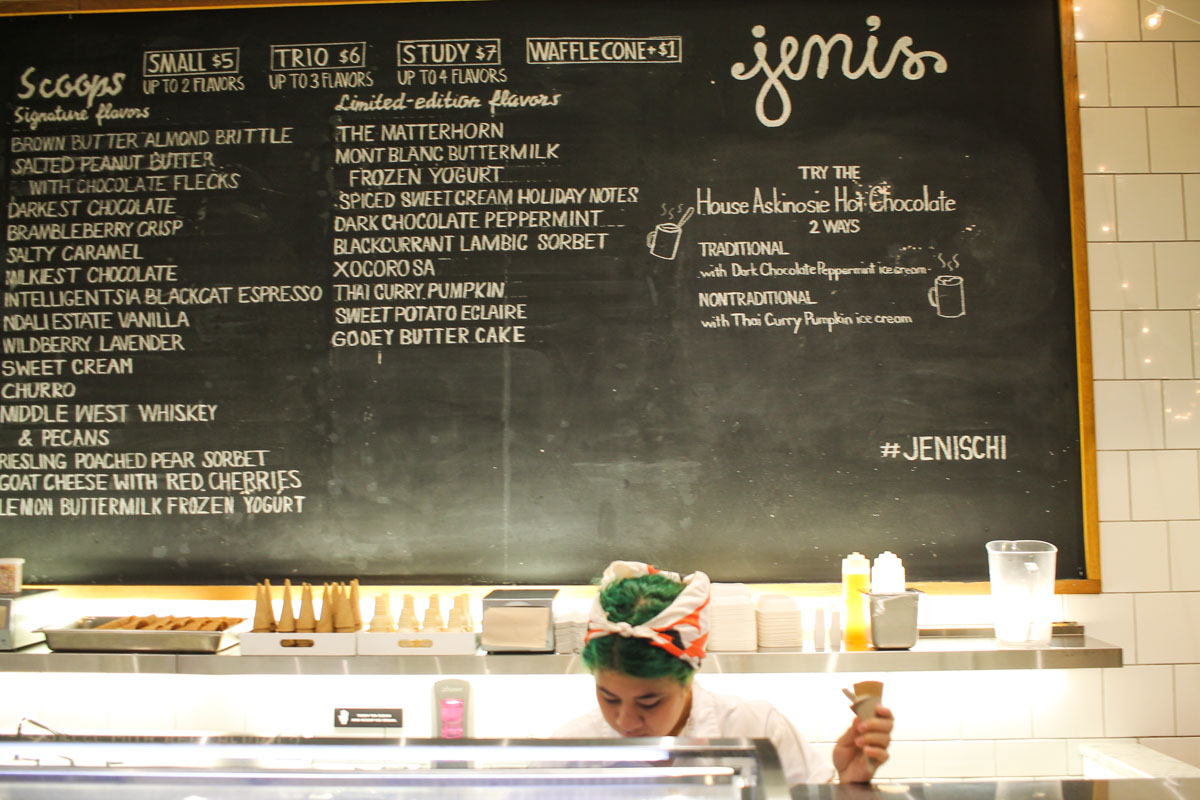 Scoops
SMALL $5
UP TO 2 FLAVORS
TRIO $6
UP TO 3 FLAVORS
STUDY $7
UP TO 4 FLAVORS
WAFFLE CONE + $1
Signature flavors
BROWN BUTTER ALMOND BRITTLE
SALTED PEANUT BUTTER
WITH CHOCOLATE FLECKS
DARKEST CHOCOLATE
BRAMBLEBERRY CRISP
SALTY CARAMEL
MILKIEST CHOCOLATE
INTELLIGENTSIA BLACKCAT ESPRESSO
NDALI ESTATE VANILLA
WILDBERRY LAVENDER
SWEET CREAM
CHURRO
MIDDLE WEST WHISKEY
& PECANS
RIESLING POACHED PEAR SORBET
GOAT CHEESE WITH RED CHERRIES
LEMON BUTTERMILK FROZEN YOGURT
Limited-edition flavors
THE MATTERHORN
MONT BLANC BUTTERMILK
FROZEN YOGURT
SPICED SWEET CREAM HOLIDAY NOTES
DARK CHOCOLATE PEPPERMINT
BLACKCURRANT LAMBIC SORBET
XOCOROSA
THAI CURRY PUMPKIN
SWEET POTATO ECLAIRE
GOOEY BUTTER CAKE
jeni's
TRY THE
House Askinosie Hot Chocolate
2 WAYS
TRADITIONAL
with Dark Chocolate Peppermint ice cream
NONTRADITIONAL
with Thai Curry Pumpkin ice cream
#JENISCHI